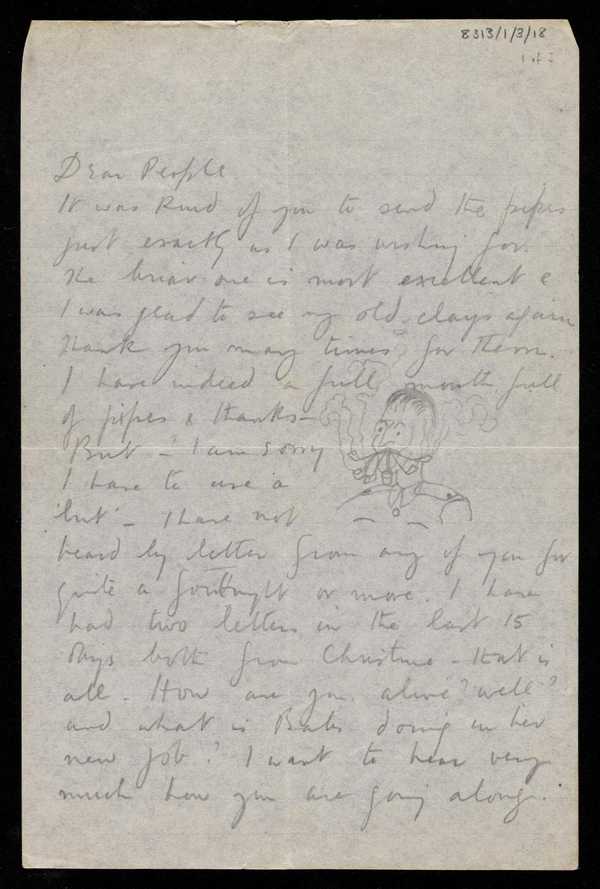 8313/1/3/18
1 of 2
Dear People
It was kind of you to send the pipes
just exactly as I was wishing for.
The briar one is most excellent &
I was glad to see my old clays again
thank you many times for them.
I have indeed a full mouth full
of pipes & thanks –
But – I am sorry
I have to use a
'but' – I have not
heard by letter from any of you for
quite a fortnight or more. I have
had two letters in the last 15
days both from Christine – that is
all. How are you alive? well?
and what is Babs doing in her
new job? I want to hear very
much how you are going along.